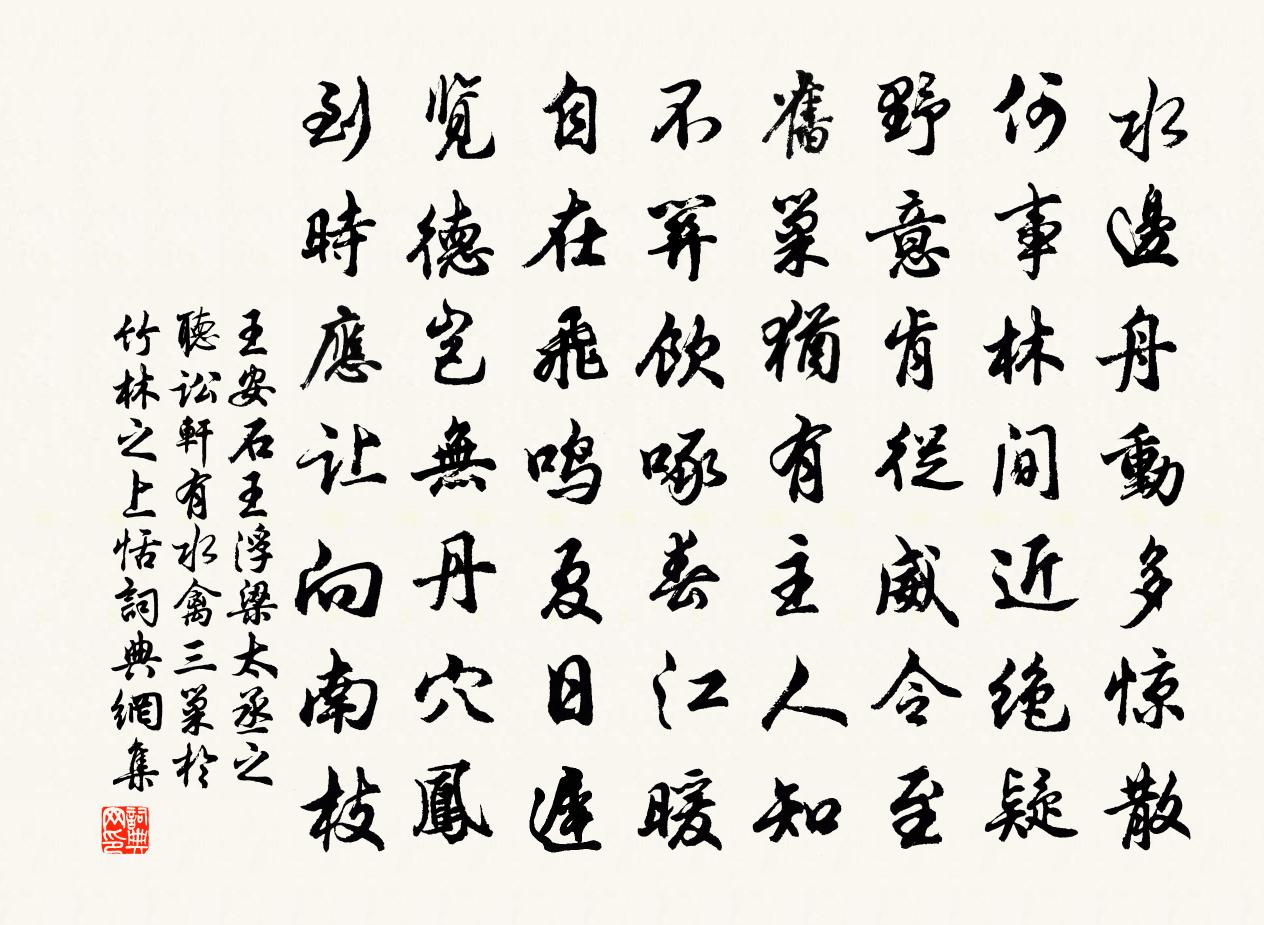 水邊舟動多惊散
何事林间近绝疑
野意肯從威令至
舊巢猶有主人知
不羣飲啄春江暖
自在飛鸣夏日遲
覽德岂無丹穴鳳
到時應让向南枝
王安石王浮梁太丞之
聽讼軒有水禽三巢於
竹林之上恬詞典網集
詞典网印